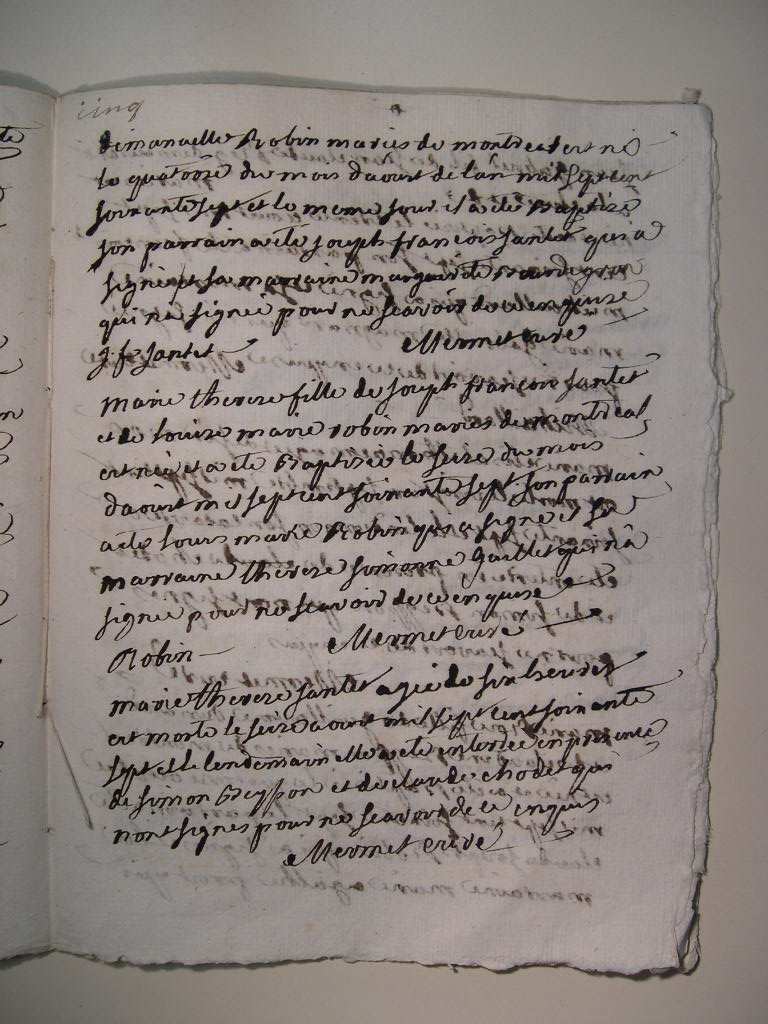 cinq
demanuelle Robin maries de montreal est né
le quatorse du mois daoust de lan mil sept cent
soixante sept et le meme jour il a ete Baptizé
son parrain a ete joseph francois jantet qui a
signé et sa marraine marguerite
qui na signéé pour ne scavoir de ce enquise
J f jantet Mermet curé
marie therese fille de joseph francois jantet
et de louise marie robin maries de montreal
est néé et a ete Baptizéé le seize du mois
daoust mil sept cent soixante sept son parrain
a ete louis marie Robin qui a signé et sa
marraine therese simonne Gaillet qui na
signéé pour ne scavoir de ce enquise
Mermet curé
Robin
marie therese jantet agéé de six heures
est morte le seize aoust mil sept cent soixante
sept et le lendemain elle a ete enterréé en presence
de simon Beysson et de claude chodet qui
nont signes pour ne scavoir de ce enquis
Mermet curé